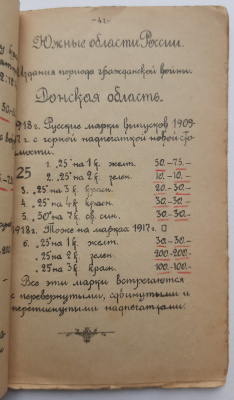 -42-
Южные области России.
Издания периода гражданской войны.
Донская область.
1918г. Русские марки выпусков 1909-
17г. с черной надпечаткой новой сто-
имости.
25
1. „25" на 1к. желт. 50.- 75.-
2. „25" на 2к. зелен. 10.- 10.-
3. „25" на 3к. красн. 20.- 30.-
4. „25" на 4к. красн. 30.- 30.-
5. „50" на 7к. св. син. 30.- 30.-
1918г. Тоже на марках 1917г. □
6. „25" на 1к. желт. 30.- 30.-
„25" на 2к. зелен. 200.- 200.-
„25" на 3к. красн. 100.- 100.-
Все эти марки встречаются
с перевернутыми, сдвинутыми и
надпечатками.